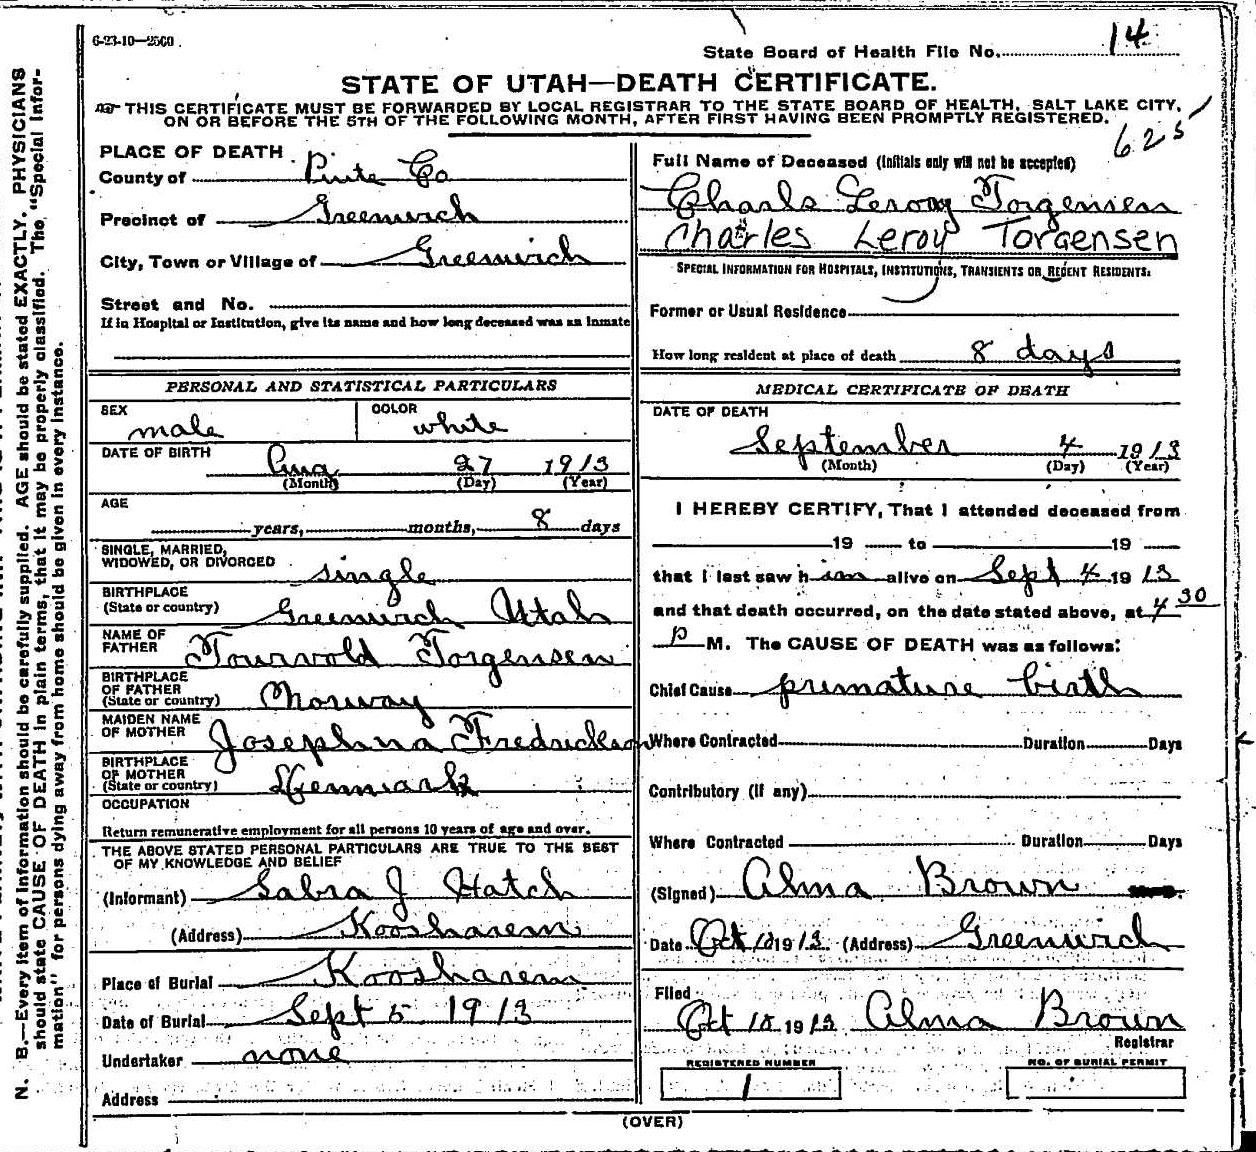 6-23-10—2500.
State Board of Health File No. 14
STATE OF UTAH—DEATH CERTIFICATE.
THIS CERTIFICATE MUST BE FORWARDED BY LOCAL REGISTRAR TO THE STATE BOARD OF HEALTH, SALT LAKE CITY,
ON OR BEFORE THE 5TH OF THE FOLLOWING MONTH, AFTER FIRST HAVING BEEN PROMPTLY REGISTERED.
625
PLACE OF DEATH
County of Piute Co
Precinct of Greenwich
City, Town or Village of Greenwich
Street and No.
If in Hospital or Institution, give its name and how long deceased was an inmate
PERSONAL AND STATISTICAL PARTICULARS
SEX male
COLOR white
DATE OF BIRTH Aug 27 1913
(Month) (Day) (Year)
AGE
years, months, 8 days
SINGLE, MARRIED,
WIDOWED, OR DIVORCED single
BIRTHPLACE
(State or country) Greenwich Utah
NAME OF
FATHER Tourvold Torgensen
BIRTHPLACE
OF FATHER
(State or country) Norway
MAIDEN NAME
OF MOTHER Josephina Fredrickson
BIRTHPLACE
OF MOTHER
(State or country) Denmark
OCCUPATION
Return remunerative employment for all persons 10 years of age and over.
THE ABOVE STATED PERSONAL PARTICULARS ARE TRUE TO THE BEST
OF MY KNOWLEDGE AND BELIEF
(Informant) Sabra J Hatch
(Address) Koosharem
Place of Burial Koosharem
Date of Burial Sept 5 1913
Undertaker none
Address
Full Name of Deceased (Initials only will not be accepted)
Charls Leroy Torgensen
Charles Leroy Torgensen
SPECIAL INFORMATION FOR HOSPITALS, INSTITUTIONS, TRANSIENTS OR RECENT RESIDENTS.
Former or Usual Residence
How long resident at place of death 8 days
MEDICAL CERTIFICATE OF DEATH
DATE OF DEATH
September 4 1913
(Month) (Day) (Year)
I HEREBY CERTIFY, That I attended deceased from
19 to 19
that I last saw him alive on Sept 4 1913
and that death occurred, on the date stated above, at 4 30
P M. The CAUSE OF DEATH was as follows:
Chief Cause premature birth
Where Contracted Duration Days
Contributory (if any)
Where Contracted Duration Days
(Signed) Alma Brown
Date Oct 10 1913 (Address) Greenwich
Filed
Oct 10 1913 Alma Brown
Registrar
REGISTERED NUMBER
1
NO. OF BURIAL PERMIT
(OVER)
N. B.—Every item of information should be carefully supplied. AGE should be stated EXACTLY. PHYSICIANS
should state CAUSE OF DEATH in plain terms, that it may be properly classified. The "Special Infor-
mation" for persons dying away from home should be given in every instance.